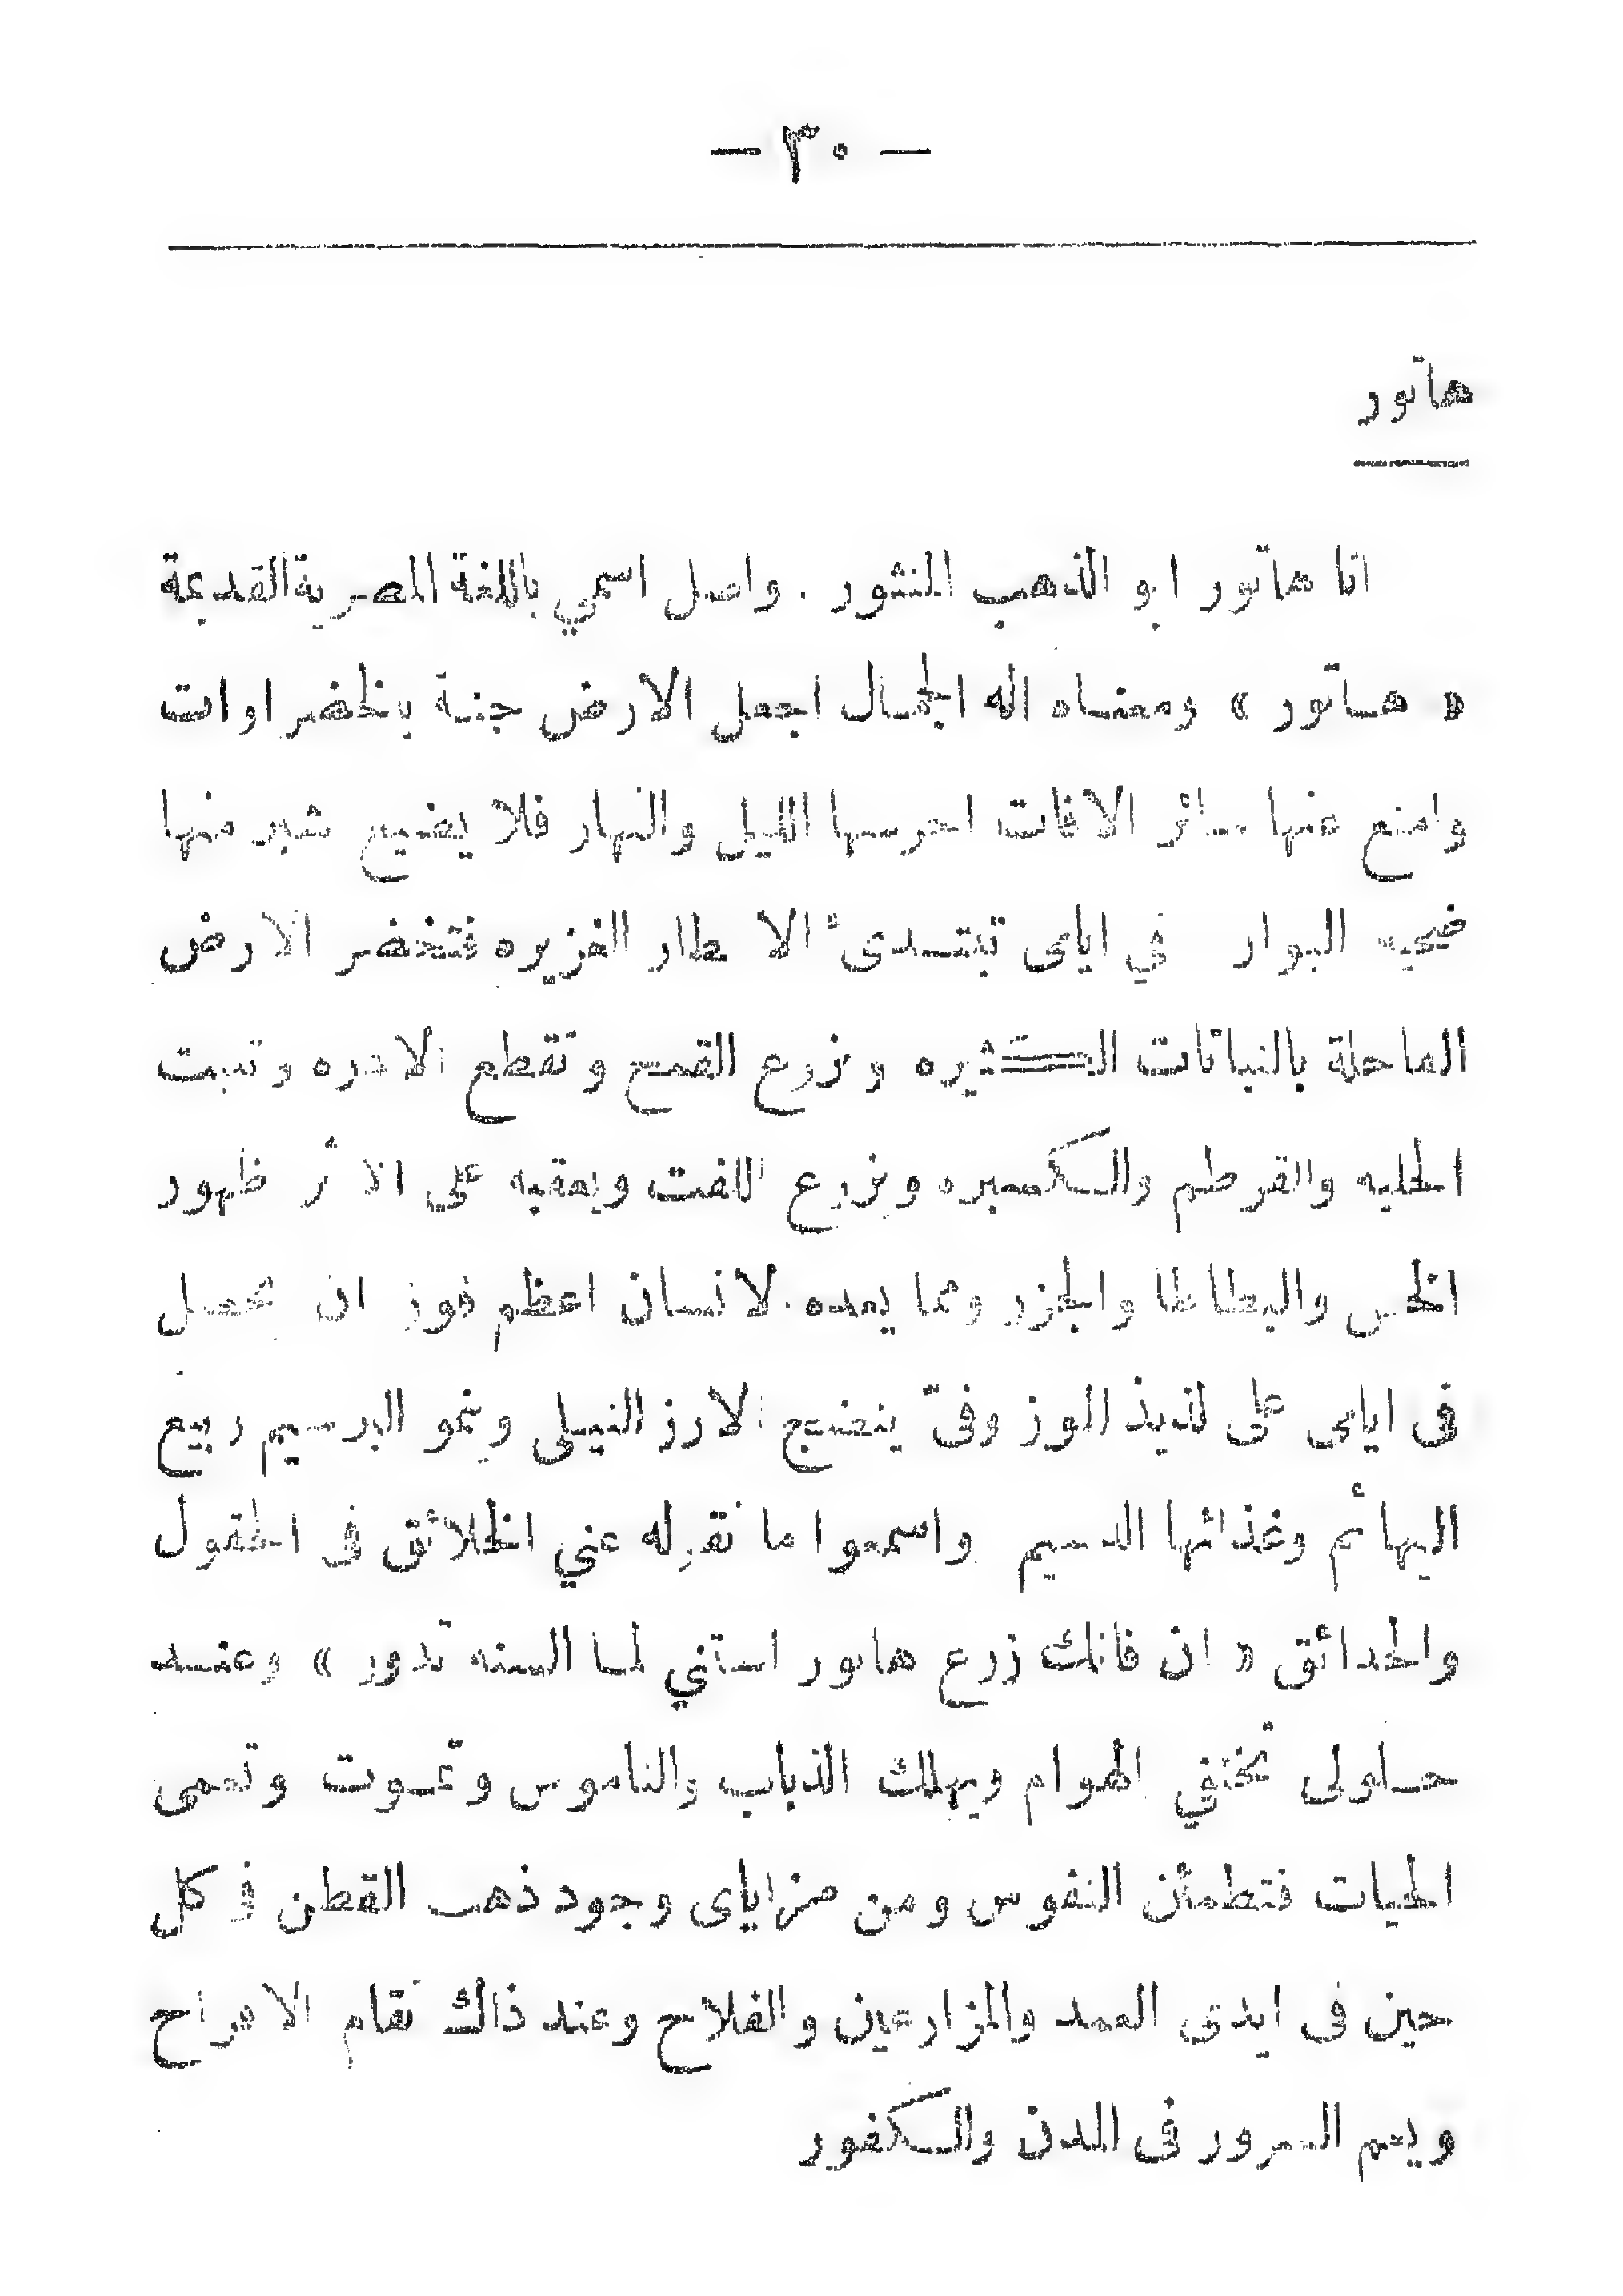 — ٣٠ —
هاتور
انا هاتور ابو الذهب المنثور . واصل اسمي باللغة المصرية القديمة
« هاتور » ومعناه اله الجمال اجعل الارض جنة بالخضراوات
وامنع عنها سائر الافات احرسها الليل والنهار فلا يضيع شبر منها
ضحيه البوار في ايامى تبتدىء الامطار الغزيره فتخضر الارض
الماحلة بالنباتات الكثيره ويزرع القمح وتقطع الادره وتنبت
الحلبه والقرطم والكسبره ويزرع اللفت ويعقبه على الاثر ظهور
الخس والبطاطا والجزر ومما يعده الانسان اعظم فوز ان يحصل
فى ايامى على لذيذ الموز وفىّ ينضج الارز النيلى وينمو البرسيم ربيع
البهائم وغذائها الدسيم واسمعوا ما تقوله عني الخلائق فى الحقول
والحدائق « ان فاتك زرع هاتور استني لما السنه تدور » وعند
حلولى تختفي الهوام ويهلك الذباب والناموس وتموت وتعمى
الحيات فتطمئن النفوس ومن مزاياى وجود ذهب القطن فى كل
حين فى ايدى العمد والمزارعين والفلاح وعند ذاك تقام الافراح
ويعم السرور فى المدن والكفور